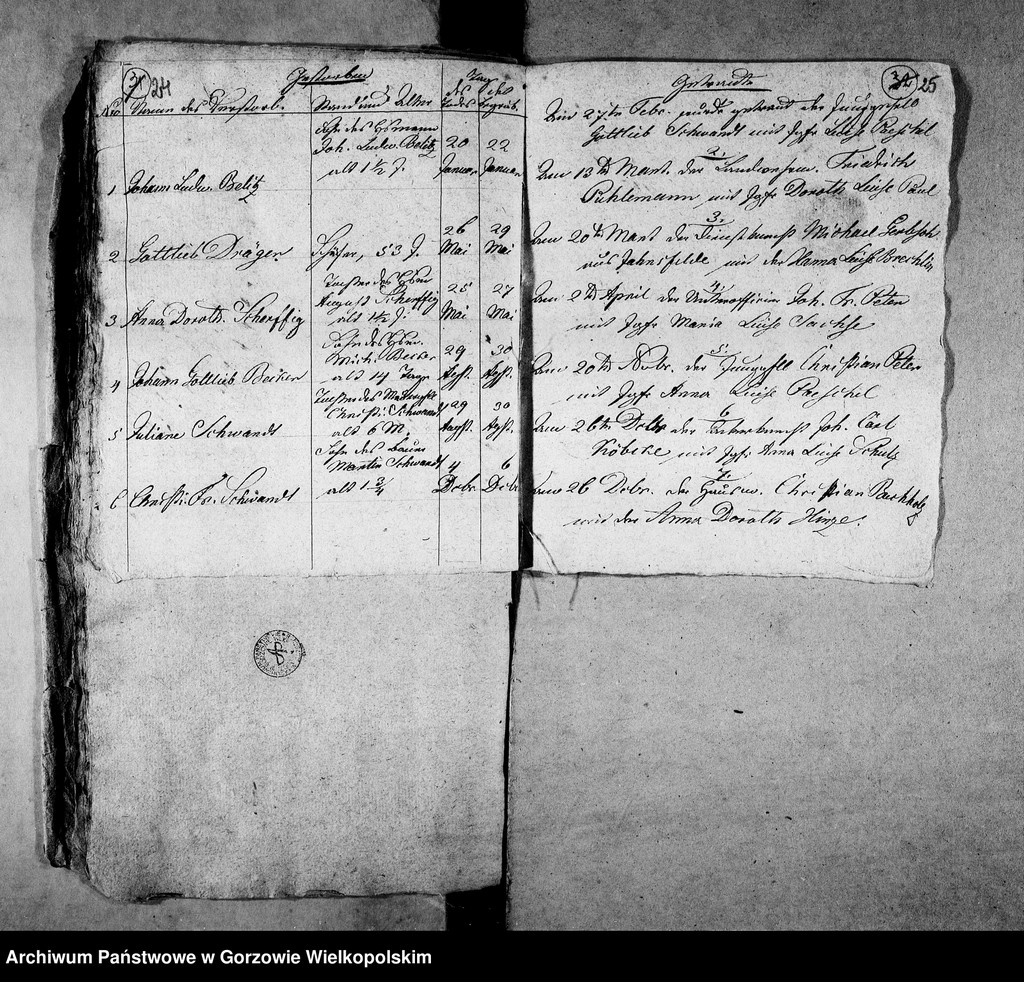 31 24
Gestorben
Tag
des des
No Name des Verstorb. Stand und Alter Todes Begräb.
Sohn des
Joh. Ludw. Belitz 20 22
alt 1½ J. Januar Januar
1 Johann Ludw. Belitz
26 29
2 Gottlieb Dräger Schäfer, 53 J. Mai Mai
Tochter des
August Scherffig 25 27
3 Anna Doroth. Scherffig alt 1½ J. Mai Mai
Sohn des
Mich. Becker 29 30
4 Johann Gottlieb Becker alt 14 Tage Augst. Augst.
Tochter des
Christ. Schwandt 29 30
5 Juliane Schwandt alt 6 M. Augst. Augst.
Sohn des
Martin Schwandt 4 6
6 Christ. Fr. Schwandt alt 1¾ Dcbr. Dcbr.
32 25
Getraut
Den 27ten Febr. wurde getraut der Junggesell
Gottlieb Schwandt mit Jgfr. Luise Paeschel
2.
Den 13ten Mart. der Friedrich
Puhlemann mit Jgfr. Doroth. Luise Paul
3.
Den 20ten Mart der Dienstknecht Michael
aus Jahnsfelde mit der Hanna Luise Brechlin
4.
Den 2ten April der Unteroffizier Joh. Fr. Peter
mit Jgfr. Maria Luise Sachse
5.
Den 20ten Nvbr. der Junggesell Christian Peter
mit Jgfr. Anna Luise Paeschel
6
Den 26ten Dcbr der Joh. Carl
mit Jgfr. Anna Luise Schulz
7.
Den 26 Dcbr. der Christian Buchholz
mit der Anna Doroth. Hinze.
Archiwum Państwowe w Gorzowie Wielkopolskim